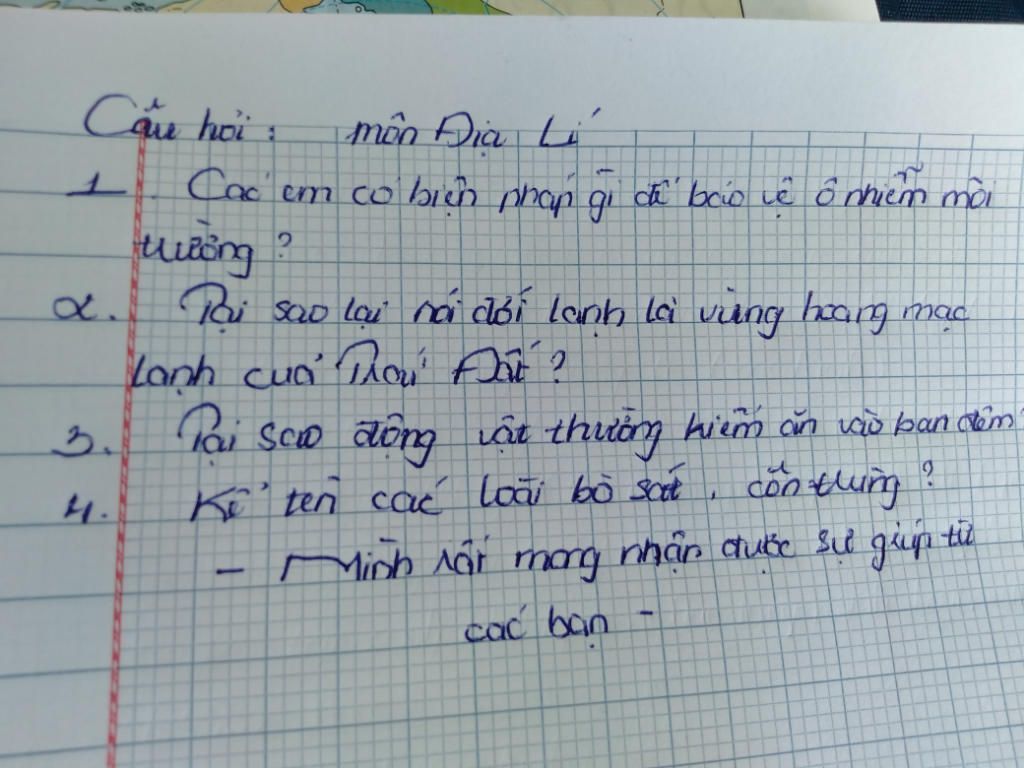 Câu hỏi : môn Địa Lí
1 . Các em có biện pháp gì để bảo vệ ô nhiễm môi
trường ?
2. Tại sao lại nói đới lạnh là vùng hoang mạc
lạnh của Trái Đất ?
3. Tại sao động vật thường hiếm ăn vào ban đêm ?
4. Kể tên các loài bò sát, côn trùng ?
- Mình rất mong nhận được sự giúp từ
các bạn -